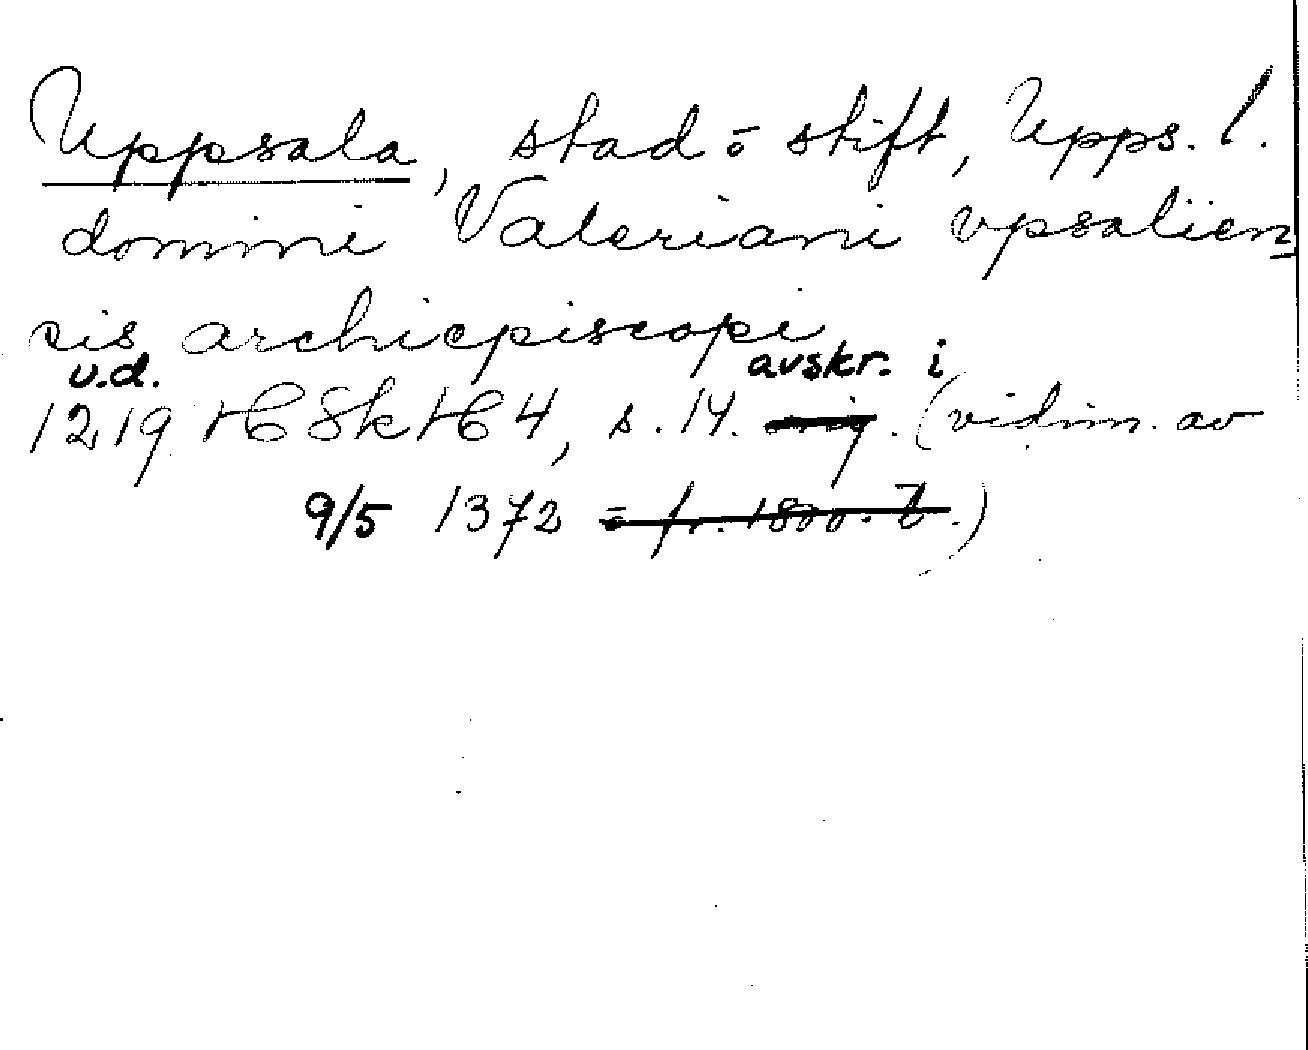 Uppsala, stad o stift, Upps. l.
domini Valeriani vpsalien
sis archiepiscopi
u.d. avskr. i
1219 HSkH 4, s. 14. orig. (vidim. av
9/5 1372 o fr. 1800-t.)